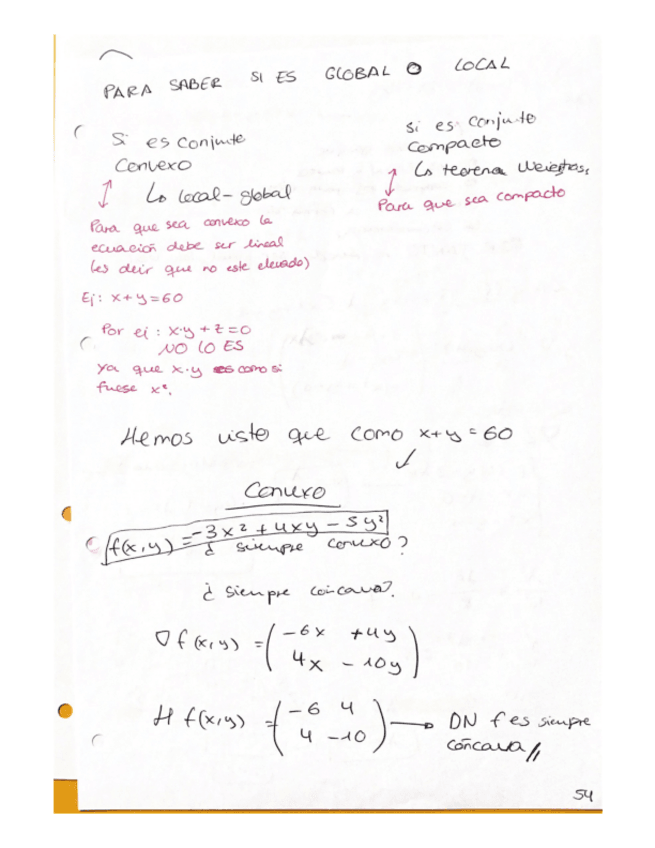 PARA SABER SI ES GLOBAL O LOCAL
Si es Conjunto
Convexo
↳ local-global
Para que sea convexo la
ecuación debe ser lineal
(es decir que no este elevado)
Ej: x+y=60
Por ej: x·y + z=0
NO LO ES
ya que x·y es como si
fuese x².
si es conjunto
Compacto
↳ teorema
Para que sea compacto
Hemos visto que como x+y=60
Convexo
f(x,y) = -3x² + 4xy - 5y²
¿ siempre convexo?
¿ Siempre concava?
∇f(x,y) = (-6x +4y
4x - 10y)
H f(x,y) = (-6 4
4 -10) → DN f es siempre
concava //
54